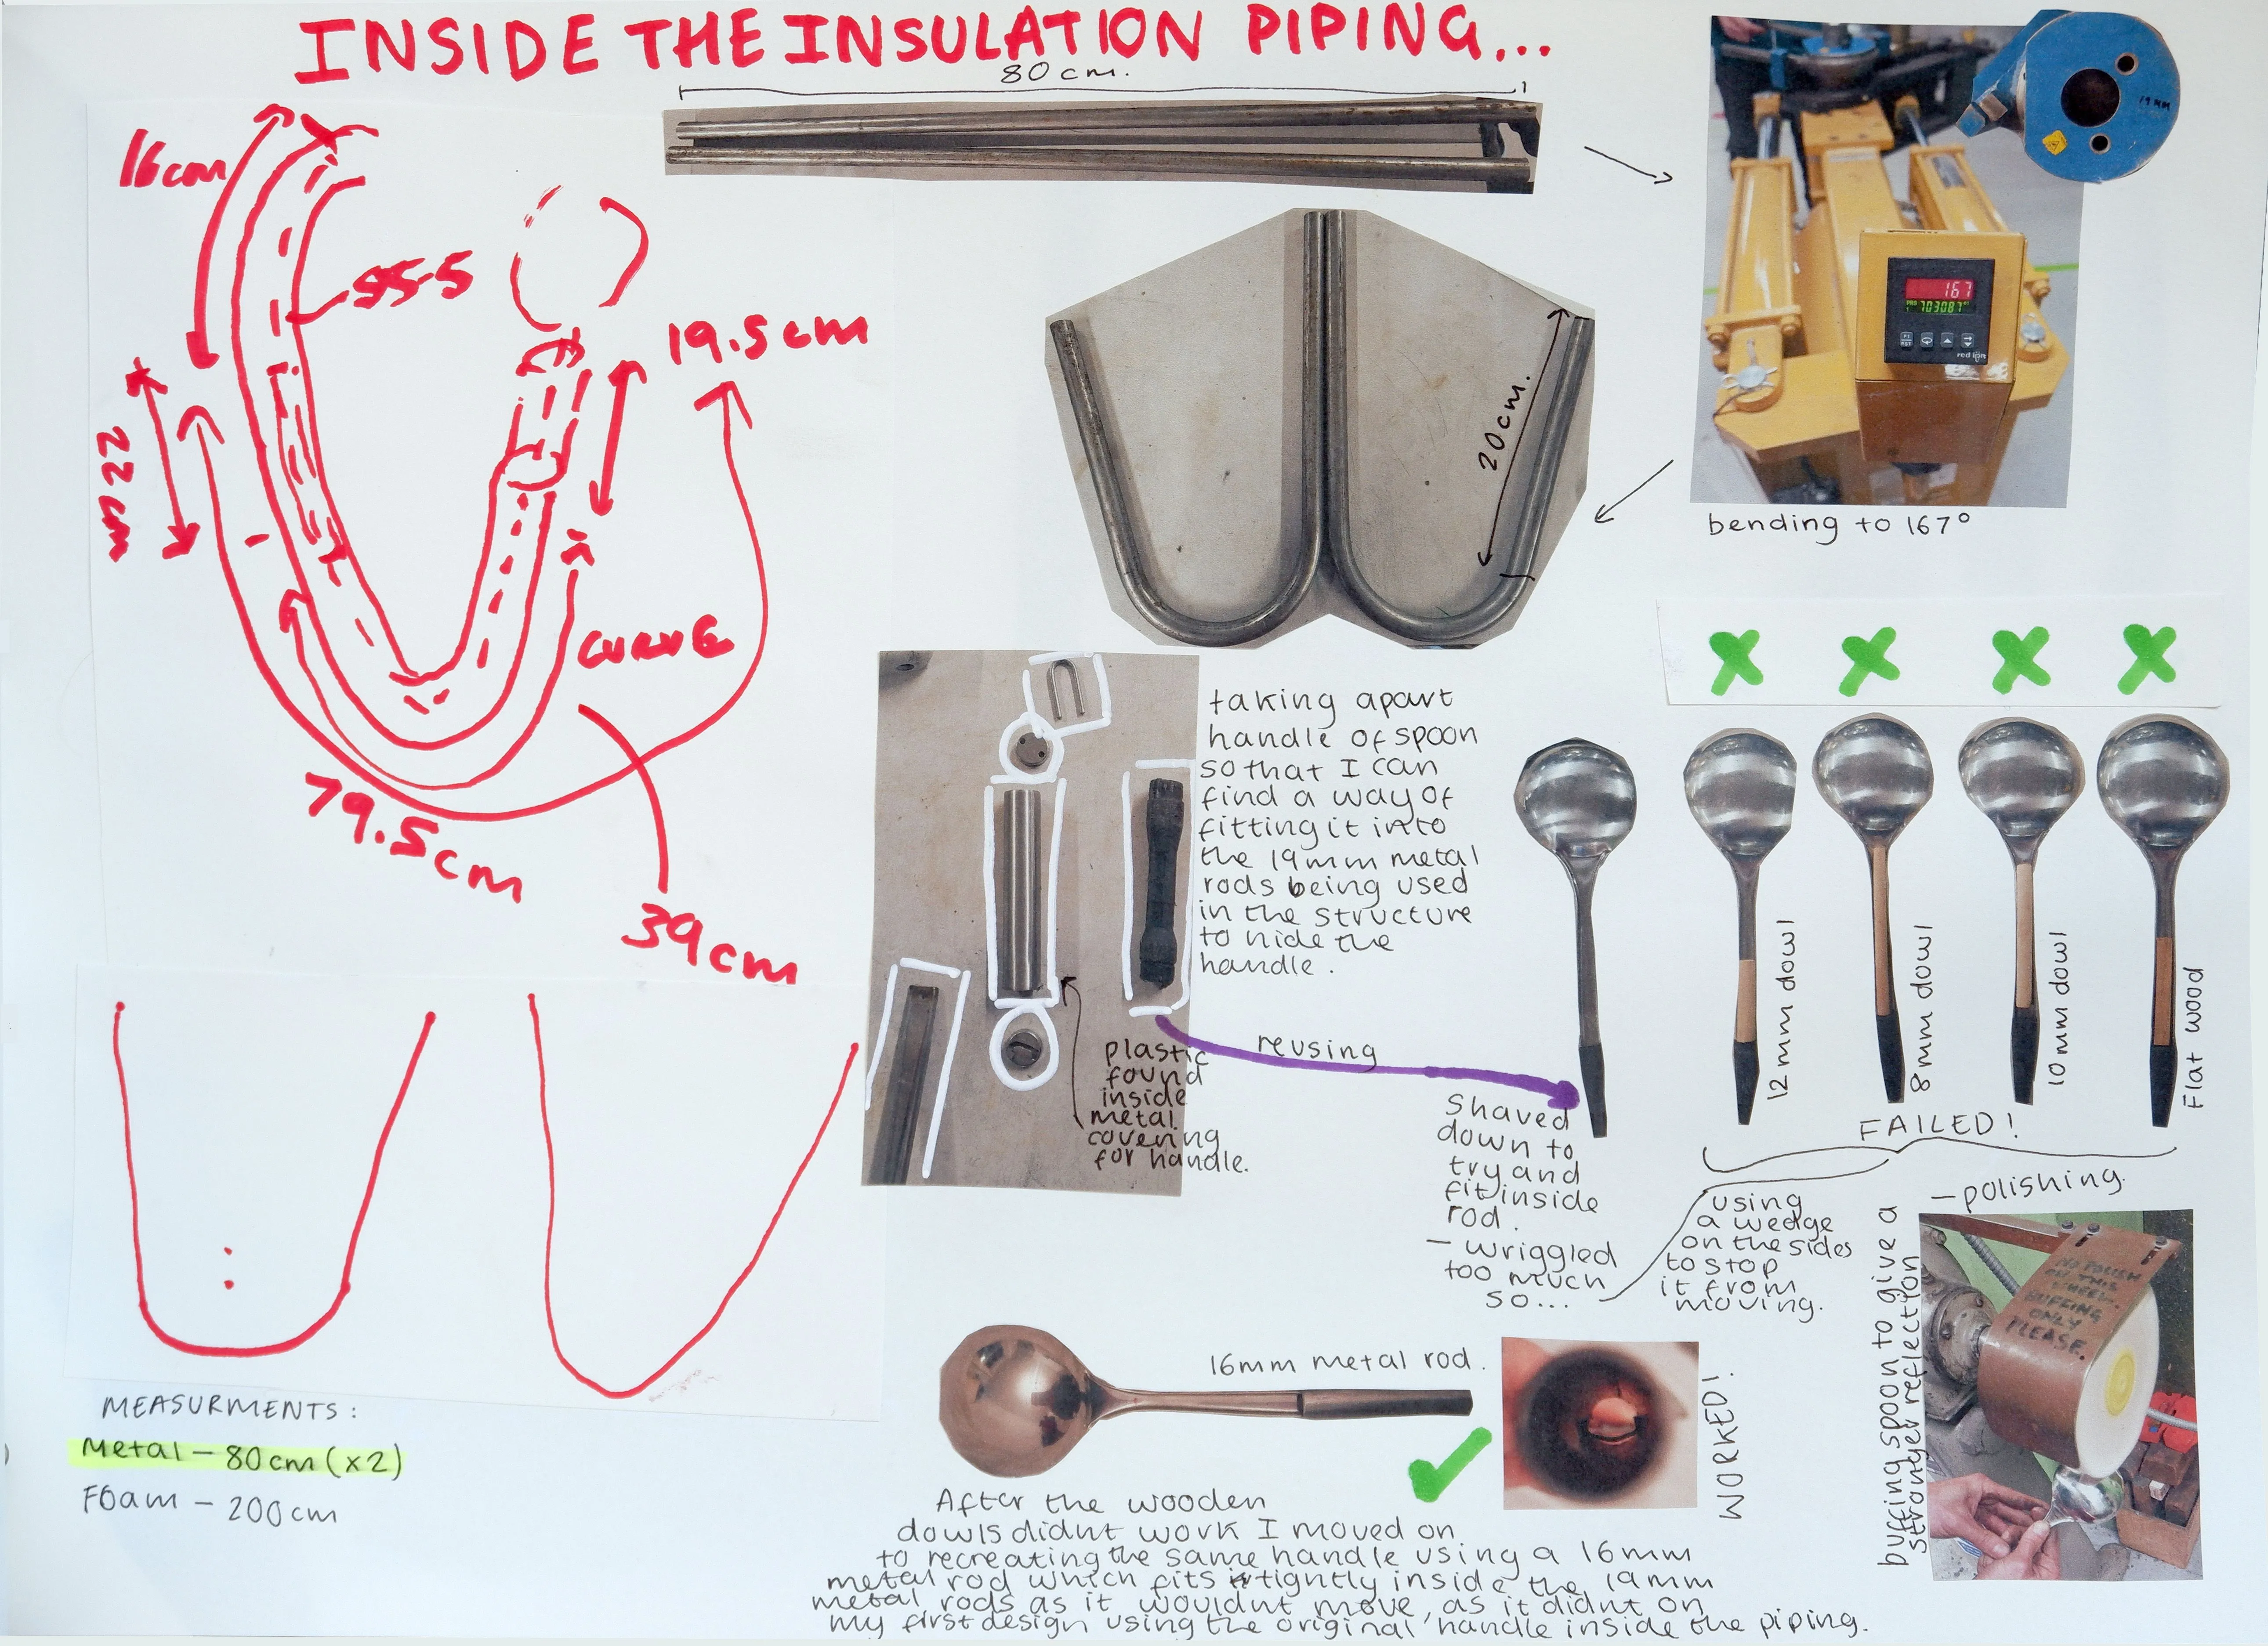 INSIDE THE INSULATION PIPING...
80cm.
16cm
55.5
19.5cm
22cm
CURVE
79.5cm
39cm
20cm.
19MM
167
703087
red lion
bending to 167°
taking apart
handle of spoon
so that I can
find a way of
fitting it into
the 19mm metal
rods being used
in the structure
to hide the
handle.
plastic
found
inside
metal
covering
for handle.
reusing
Shaved
down to
try and
fit inside
rod.
- wriggled
too much
so...
12mm dowl
8mm dowl
10mm dowl
Flat wood
FAILED!
using
a wedge
on the sides
to stop
it from
moving.
- polishing
buffing spoon to give a
stronger reflection
NO POLISH
ON THIS
WHEEL.
BUFFING
ONLY
PLEASE.
MEASURMENTS:
Metal - 80cm (x2)
Foam - 200cm
16mm metal rod.
WORKED!
After the wooden
dowls didnt work I moved on
to recreating the same handle using a 16mm
metal rod which fits tightly inside the 19mm
metal rods as it wouldnt move, as it didnt on
my first design using the original handle inside the piping.